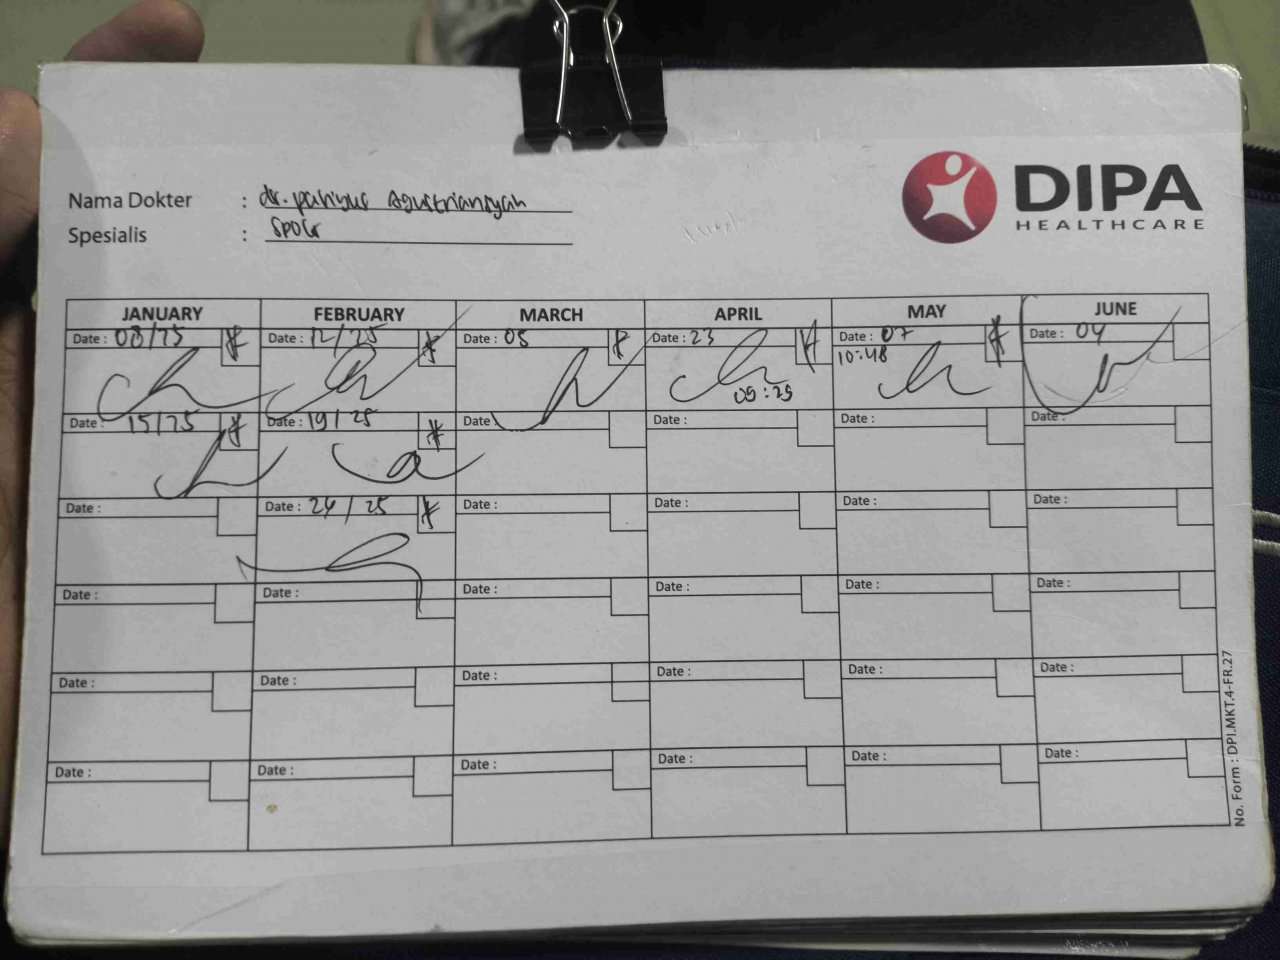 DIPA
HEALTHCARE
Nama Dokter : dr. Agustriansyah
Spesialis : SPOG
JANUARY FEBRUARY MARCH APRIL MAY JUNE
Date : 08/25 Date : 12/25 Date : 05 Date : 23 Date : 07 Date : 04
09:29 10:48
Date : 15/25 Date : 19/25 Date Date : Date : Date :
Date : Date : 24/25 Date : Date : Date : Date :
Date : Date : Date : Date : Date : Date :
Date : Date : Date : Date : Date : Date :
Date : Date : Date : Date : Date : Date :
No. Form : DPI.MKT.4-FR.27